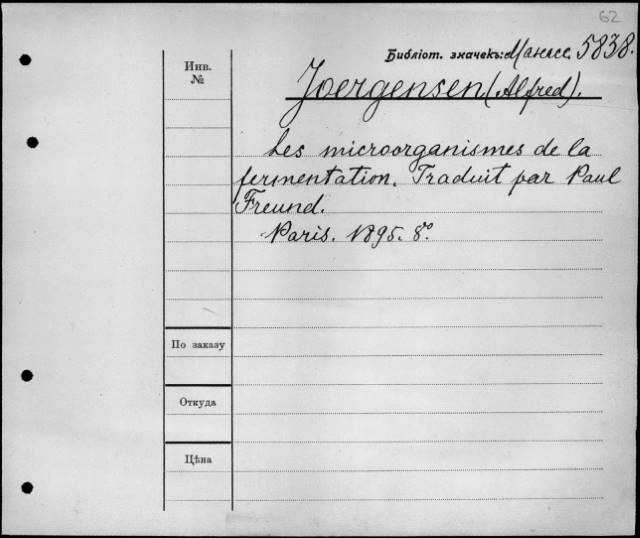 62
Библіот. значекъ: Манасс. 5838.
Инв.
№
Joergensen (Alfred).
Les microorganismes de la
fermentation. Traduit par Paul
Freund.
Paris. 1895. 8º.
По заказу
Откуда
Цѣна